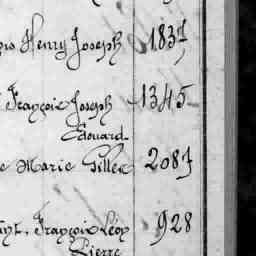 Henry Joseph 1837
François Joseph 1345
Edouard
Marie Gillec 2087
François Léop 928
Pierre